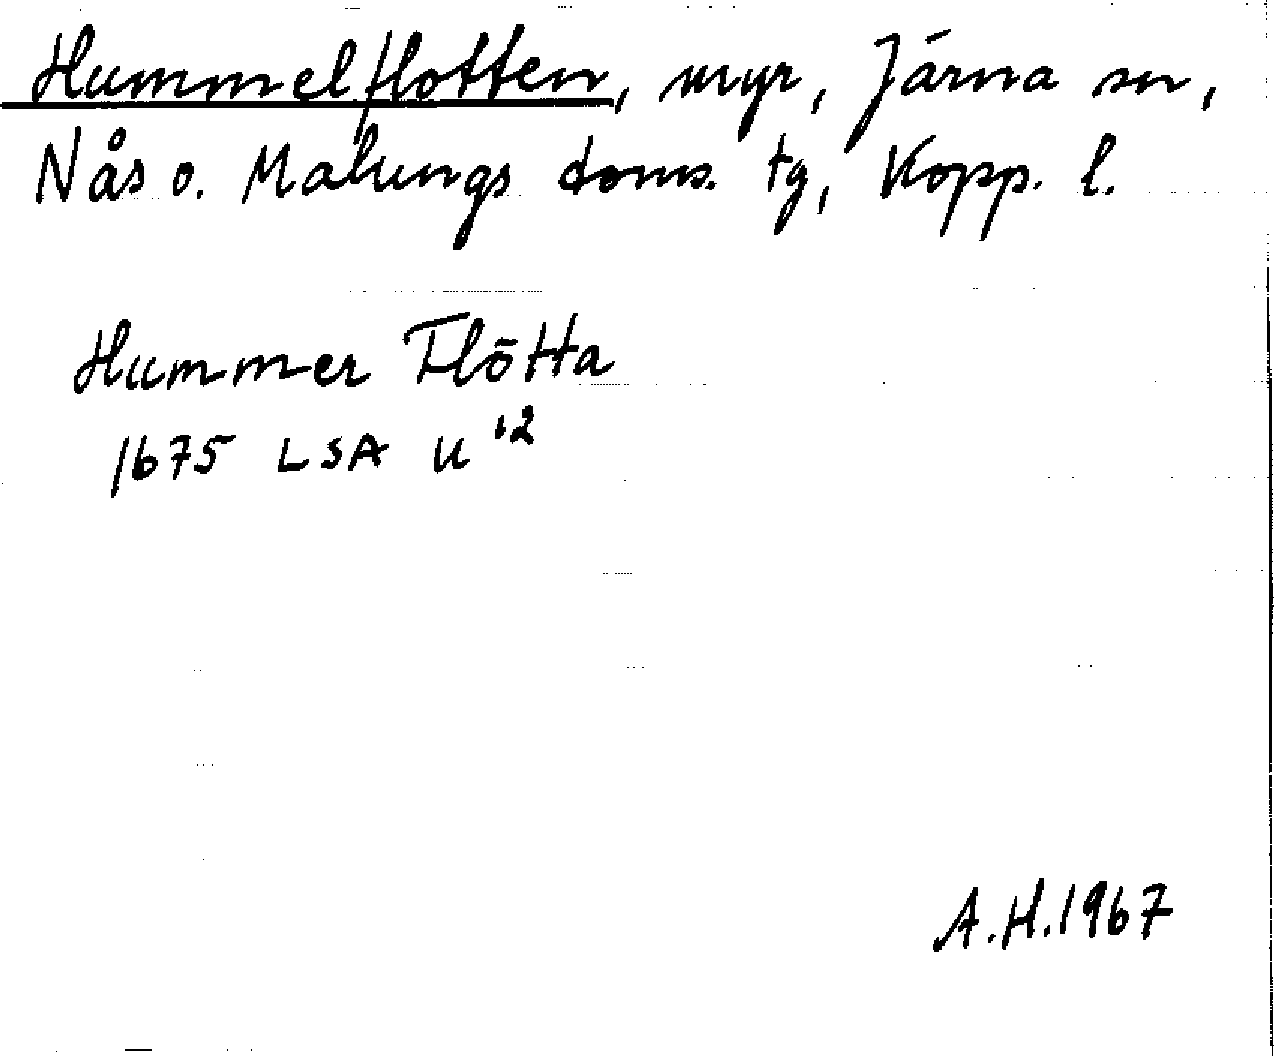 Hummelflotten, myr, Järna sn,
Nås o. Malungs doms. tg, Kopp. l.
Hummer Flötta
1675 LSA U 12
A.H.1967